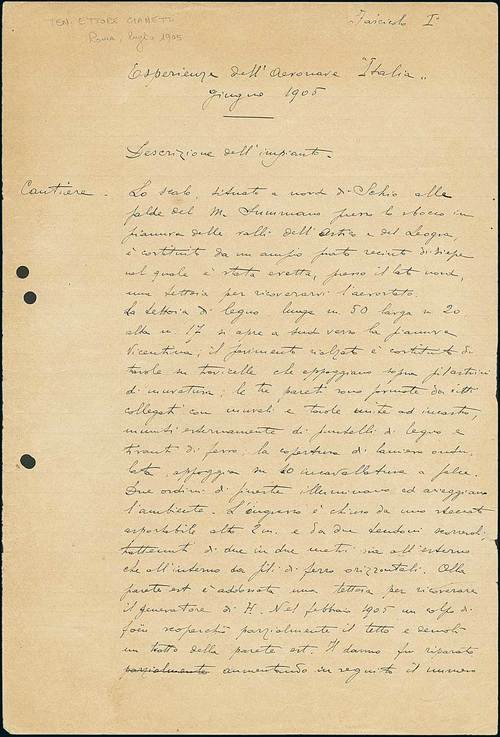 TEN. ETTORE CIANETTI
Roma, luglio 1905
Fascicolo I°
Esperienze dell'Aeronave "Italia"
giugno 1905
Descrizione dell'impianto.
Cantiere. Lo scalo, situato a nord di Schio alle
falde del M. Summano presso lo sbocco in
pianura delle valli dell'Astico e del Leogra,
è costituito da un ampio prato recinto di siepe
nel quale è stata eretta, presso il lato nord,
una tettoia per ricoverarvi l'aerostato.
La tettoia di legno lunga m. 50 larga m 20
alta m. 17 si apre a sud verso la pianura
Vicentina; il pavimento rialzato è costituito di
tavole su travicelle che appoggiano sopra pilastrini
di muratura; le tre pareti sono formate da ritti
collegati con murali e tavole unite ad incastro,
muniti esternamente di puntelli di legno e
tiranti di ferro; la copertura di lamiera ondu-
lata, appoggia su 10 incavallature a falce.
Due ordini di finestre illuminano ed areggiano
l'ambiente. L'ingresso è chiuso da uno steccato
asportabile alto 2 m. e da due tendoni scorrevoli,
trattenuti di due in due metri sia all'esterno
che all'interno da fili di ferro orizzontali. Alla
parete est è addossata una tettoia per ricoverare
il generatore di H. Nel febbraio 1905 un colpo di
föhn scoperchiò parzialmente il tetto e demolì
un tratto della parete est. Il danno fu riparato
parzialmente aumentando in seguito il numero